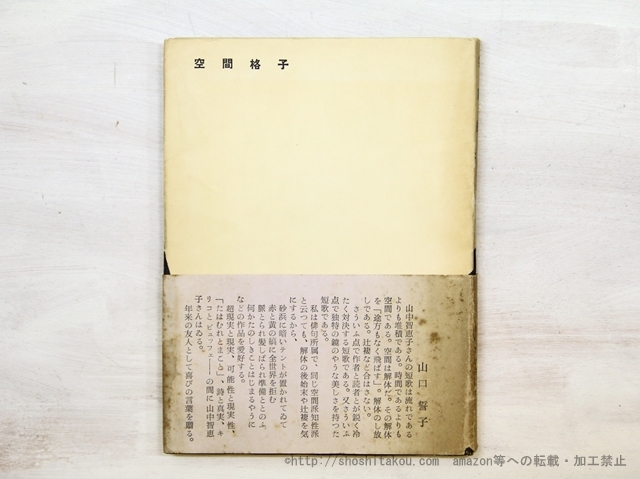 空間格子
山口誓子
山中智恵子さんの短歌は流れである
よりも堆積である。時間であるよりも
空間である。空間は解体だ。その解体
を「途方もなく飛ばす」。解体のし放
しである。辻褄など合はさない。
さういふ点で作者と読者とが鋭く冷
たく対決する短歌である。又さういふ
点で独特の鏡のやうな美しさを持つた
短歌である。
私は俳句所属で、同じ空間派知性派
と云つても、解体の後始末や辻褄を気
にするから、
砂浜に暗いテントが置かれてゐて
赤と黄の縞に全世界を拒む
脈とられ髪しばられ準備ととのふ
何かたのしきことはじまるやうに
などの作品を愛好する。
超現実と現実、可能性と現実性、
「たはむれとまこと」、詩と真実、キ
リコとビュッフェ――の間に山中智恵
子さんはゐる。
年来の友人として喜びの言葉を贈る。
©http://shoshitakou.com amazon等への転載・加工禁止